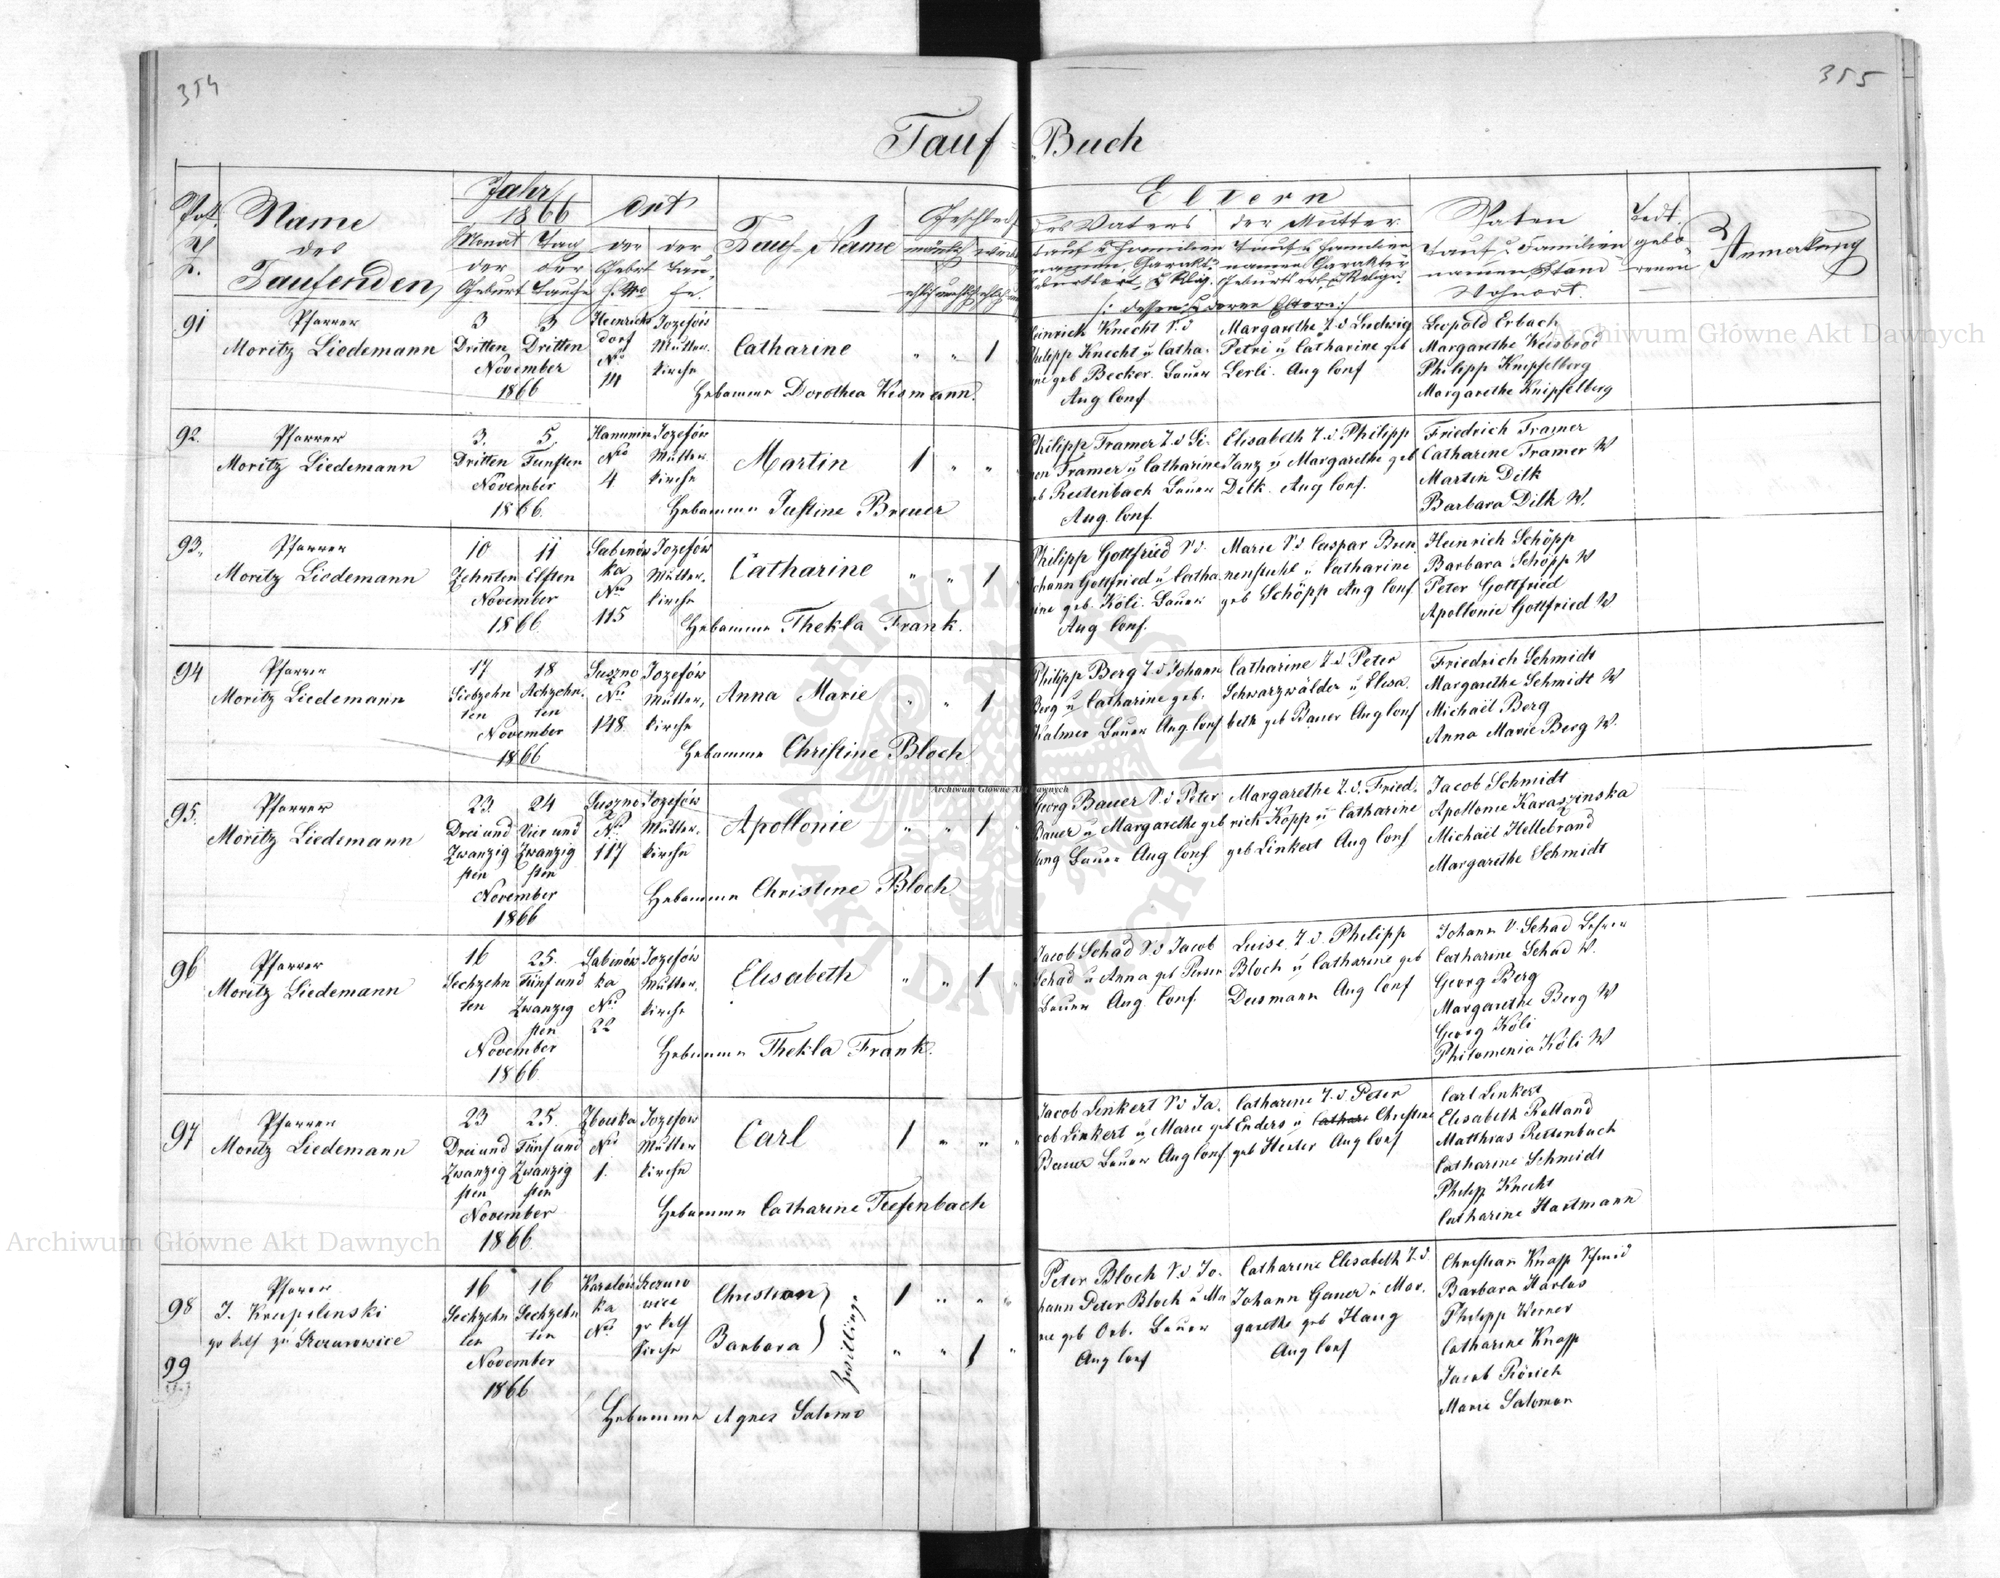 354
355
Tauf-Buch
Name
des
Taufenden
Jahr
1866
Monat Tag
der der
Geburt Taufe
Ort
der der
Tauf-Name
Eltern
des Vaters der Mutter
Paten
Wohnort.
Anmerkung
91
Pfarrer
Moritz Liedemann
3 3
Dritten Dritten
November
1866
Heinrichsdorf
No
Jozefów
Mutter-
kirche
Catharine
" " 1
Hebamme Dorothea Kismann.
Heinrich Knecht S.d
Philipp Knecht u Catha-
rine geb Becker. Bauer
Aug Conf
Margarethe T.d Ludwig
Petri u Catharine geb
Lerli. Aug Conf
Leopold Erbach
Margarethe Weisbrod
Philipp Knipfelberg
Margarethe Knipfelberg
92.
Pfarrer
Moritz Liedemann
3. 5.
Dritten Funften
November
1866.
Hanunin
No
4
Jozefów
Mutter
kirche
Martin
1 " "
Hebamme Justine Breuer
Philipp Framer S.d Si-
mon Framer u Catharine
geb Restenbach Bauer
Aug. Conf.
Elisabeth T.d Philipp
Janz u Margarethe geb
Dilk. Aug Conf.
Friedrich Framer
Catharine Framer W
Martin Dilk
Barbara Dilk W.
93.
Pfarrer
Moritz Liedemann
10 11
Zehnten Elften
November
1866.
Sabinów
ka
No
115
Jozefów
Mutter-
kirche
Catharine
" " 1
Hebamme Thekla Frank.
Philipp Gottfried S.d.
Johann Gottfried u Catha
rine geb. Köli. Bauer
Aug Conf.
Marie T.d Caspar Bren
nenstuhl u Catharine
geb Schöpp Aug Conf
Heinrich Schöpp
Barbara Schöpp W
Peter Gottfried
Apollonie Gottfried W
94
Pfarrer
Moritz Liedemann
17 18
Siebzehn Achzehn-
ten ten
November
1866
Suszno
No
148
Jozefów
Mutter,
kirche
Anna Marie
" " 1
Hebamme Christine Bloch
Philipp Berg S.d Johann
Berg u Catharine geb.
Kalmer Bauer Aug Conf
Catharine T.d. Peter
Schwarzwälder u Elisa-
beth geb Bauer Aug Conf
Friedrich Schmidt
Margarethe Schmidt W
Michaël Berg
Anna Marie Berg W.
95.
Pfarrer
Moritz Liedemann
23 24
Drei und Vier und
Zwanzig Zwanzig
sten sten
November
1866
Suszno
No
117
Jozefów
Mutter-
kirche
Apollonie
" " 1
Hebamme Christine Bloch
Georg Bauer S.d Peter
Bauer u Margarethe geb
Jung Bauer Aug Conf.
Margarethe T.d. Fried-
rich Köpp u Catharine
geb Linkert Aug Conf
Jacob Schmidt
Apollonie Karaszinska
Michaël Hellebrand
Margarethe Schmidt
96
Pfarrer
Moritz Liedemann
16 25.
Sechzehn Fünf und
ten Zwanzig
sten
November
1866.
Sabinów
ka
No
22
Jozefów
Mutter,
kirche
Elisabeth
" " 1
Hebamme Thekla Frank.
Jacob Schad S.d Jacob
Schad u Anna geb
Bauer Aug. Conf.
Luise T.d. Philipp
Bloch u Catharine geb
Dusmann Aug Conf
Johann V. Schad Lehrer
Catharine Schad W.
Georg Berg
Margarethe Berg W
Georg Köli
Philomenia Köli W
97
Pfarrer
Moritz Liedemann
23 25.
Drei und Fünf und
Zwanzig Zwanzig
sten sten
November
1866.
No
1.
Jozefów
Mutter
kirche
Carl
1 " "
Hebamme Catharine Tiefenbach
Jacob Linkert S.d Ja-
cob Linkert u Marie geb
Bauer Bauer Aug Conf
Catharine T.d. Peter
Enders u Cathari Christine
geb Hexter Aug Conf
Carl Linkert
Elisabeth Rolland
Matthias Restenbach
Catharine Schmidt
Philipp Knecht
Catharine Hartmann
98
99
Pfarrer
J. Krupilinski
16 16
Sechzehn Sechzehn
ten ten
November
1866
Karolów
ka
No
Kirche
Christian
Barbara
Zwillinge
1 " " "
" " 1 "
Hebamme Agnes Salomo
Peter Bloch S.d Jo-
hann Peter Bloch u Ma
rie geb Orb. Bauer
Aug Conf
Catharine Elisabeth T.d
Johann Gauer u Mar-
garethe geb Haug
Aug Conf
Christian Knapp Schmid
Barbara Harlas
Philipp Werner
Catharine Knapp
Jacob Rörich
Marie Salomon
Archiwum Główne Akt Dawnych
Archiwum Główne Akt Dawnych
Archiwum Główne Akt Dawnych